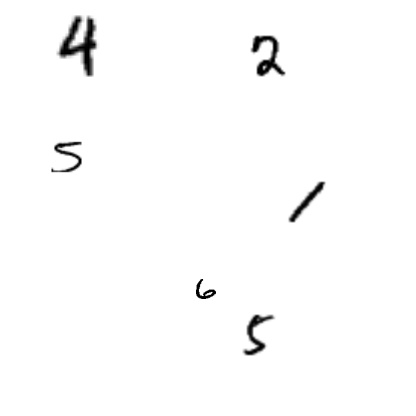 4 2
5
1
6
5